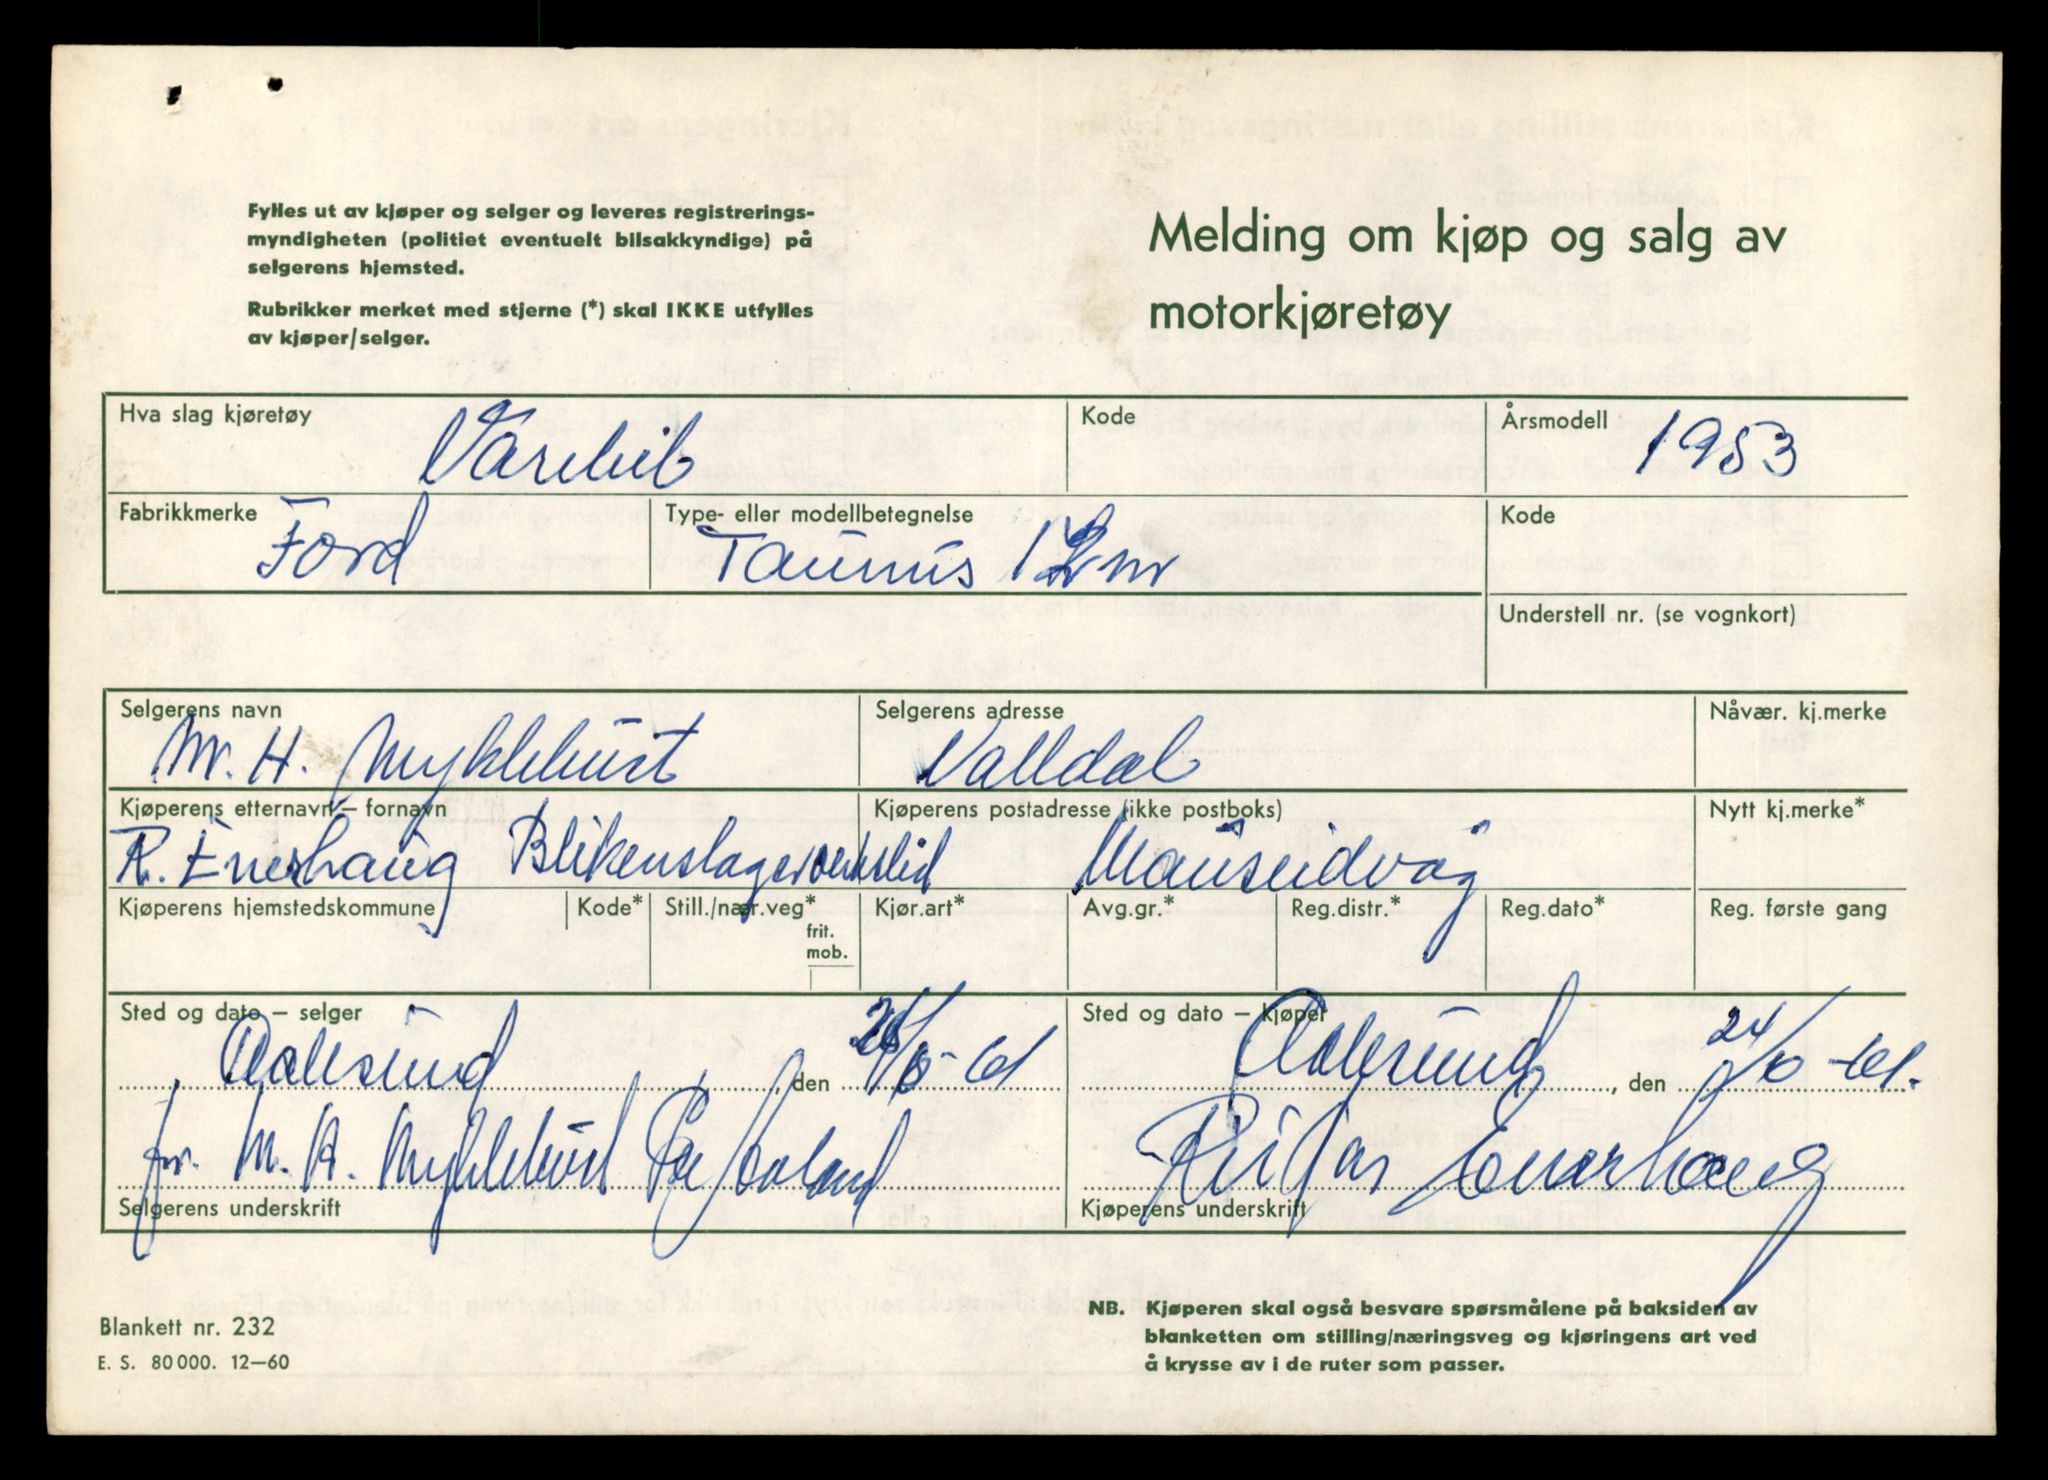 Fylles ut av kjøper og selger og leveres registrerings-
myndigheten (politiet eventuelt bilsakkyndige) på
selgerens hjemsted.
Rubrikker merket med stjerne (*) skal IKKE utfylles
av kjøper/selger.
Melding om kjøp og salg av
motorkjøretøy
Hva slag kjøretøy Varebil Kode Årsmodell 1953
Fabrikkmerke Ford Type- eller modellbetegnelse Taunus 12 m Kode
Understell nr. (se vognkort)
Selgerens navn M. H. Myklebust Selgerens adresse Valldal Nåvær. kj.merke
Kjøperens etternavn – fornavn R. Enershaug Blikenslagerverksted Kjøperens postadresse (ikke postboks) Mauseidvåg Nytt kj.merke*
Kjøperens hjemstedskommune Kode* Still./nær.veg* frit. mob. Kjør.art* Avg.gr.* Reg.distr.* Reg.dato* Reg. første gang
Sted og dato – selger Aalesund, den /6-61 Sted og dato – kjøper Aalesund, den 24/6-61.
for M. H. Myklebust
Selgerens underskrift Kjøperens underskrift
Blankett nr. 232
E. S. 80 000. 12–60
NB. Kjøperen skal også besvare spørsmålene på baksiden av
blanketten om stilling/næringsveg og kjøringens art ved
å krysse av i de ruter som passer.